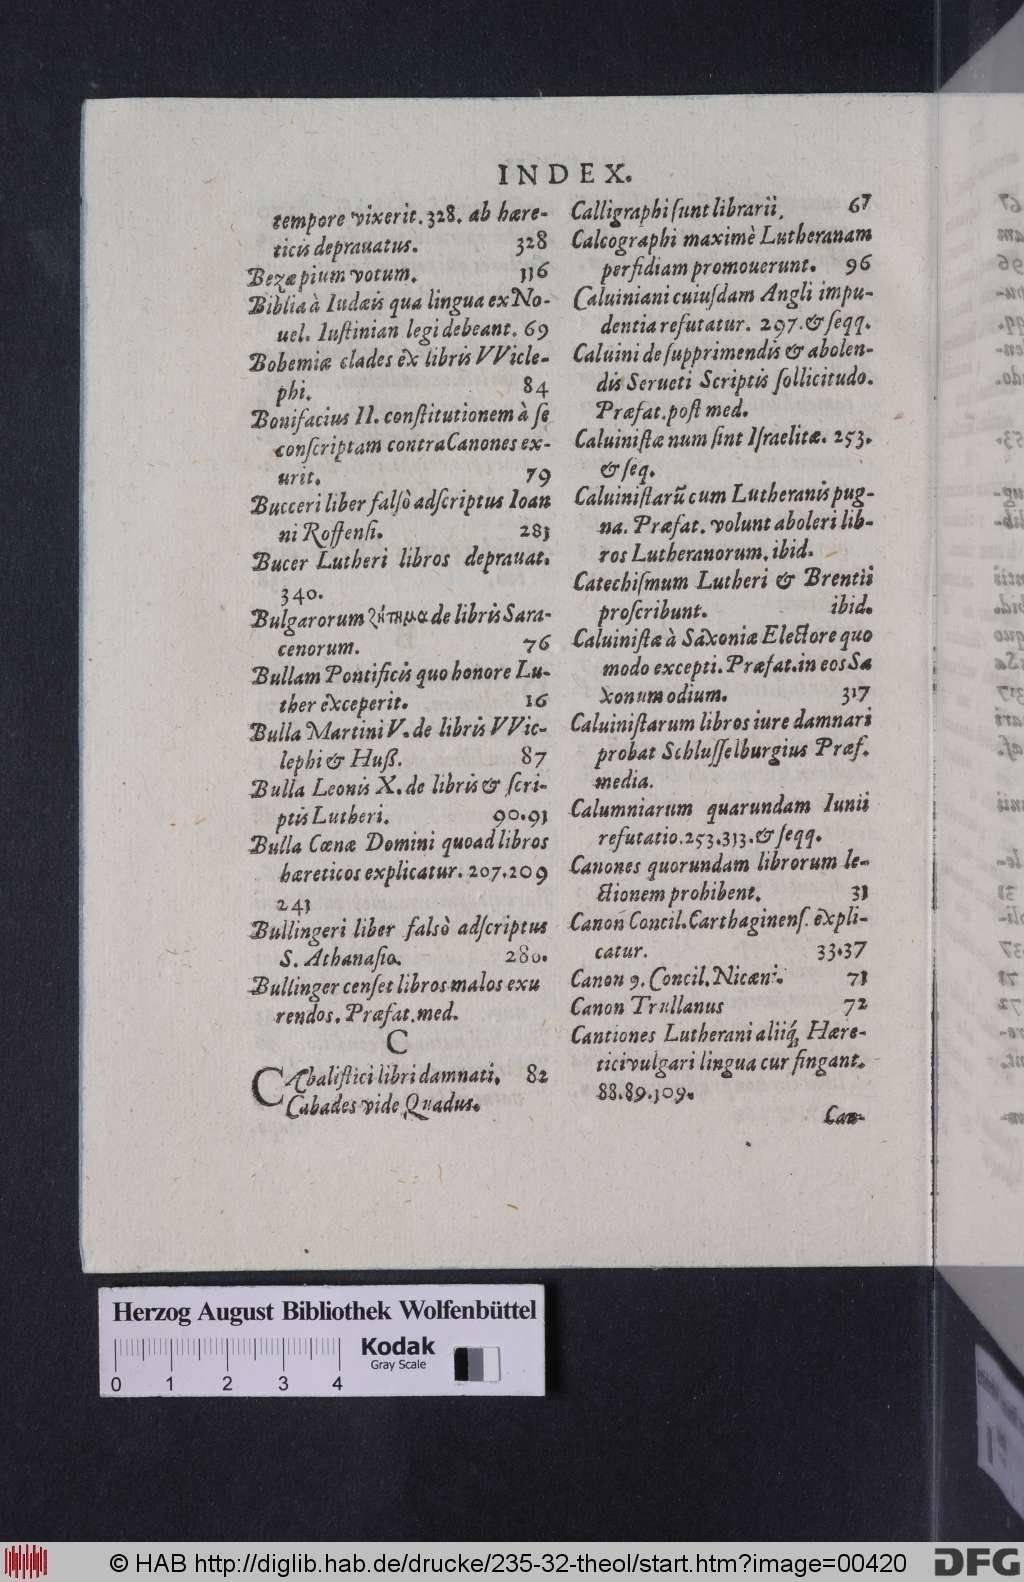 INDEX.
tempore vixerit. 328. ab hære-
ticis deprauatus. 328
Bezæ pium votum. 116
Biblia à Iudæis qua lingua ex No-
uel. Iustinian legi debeant. 69
Bohemiæ clades ex libris VVicle-
phi. 84
Bonifacius II. constitutionem à se
conscriptam contra Canones ex-
urit. 79
Bucceri liber falsò adscriptus Ioan
ni Roffensi. 281
Bucer Lutheri libros deprauat.
340.
Bulgarorum ζήτημα de libris Sara-
cenorum. 76
Bullam Pontificis quo honore Lu-
ther exceperit. 16
Bulla Martini V. de libris VVic-
lephi & Huß. 87
Bulla Leonis X. de libris & scri-
ptis Lutheri. 90.91
Bulla Cœnæ Domini quoad libros
hæreticos explicatur. 207.209
241
Bullingeri liber falsò adscriptus
S. Athanasio. 280.
Bullinger censet libros malos exu
rendos. Præfat. med.
C
CAbalistici libri damnati. 82
Cabades vide Quadus.
Calligraphi sunt librarii. 67
Calcographi maximè Lutheranam
perfidiam promouerunt. 96
Caluiniani cuiusdam Angli impu-
dentia refutatur. 297. & seqq.
Caluini de supprimendis & abolen-
dis Serueti Scriptis sollicitudo.
Præfat. post med.
Caluinistæ num sint Israelitæ. 253.
& seq.
Caluinistarũ cum Lutheranis pug-
na. Præfat. volunt aboleri lib-
ros Lutheranorum. ibid.
Catechismum Lutheri & Brentii
proscribunt. ibid.
Caluinistæ à Saxoniæ Electore quo
modo excepti. Præfat. in eos Sa
xonum odium. 317
Caluinistarum libros iure damnari
probat Schlusselburgius Præf.
media.
Calumniarum quarundam Iunii
refutatio. 253.313. & seqq.
Canones quorundam librorum le-
ctionem prohibent. 31
Canon Concil. Carthaginens. expli-
catur. 33.37
Canon 9. Concil. Nicæni. 71
Canon Trullanus 72
Cantiones Lutherani aliiq́; Hære-
tici vulgari lingua cur fingant.
88.89.109.
Can-
Herzog August Bibliothek Wolfenbüttel
Kodak
Gray Scale
0 1 2 3 4
© HAB http://diglib.hab.de/drucke/235-32-theol/start.htm?image=00420
DFG